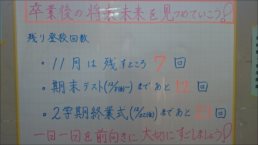 卒業後の将来未来を見つめていこう!
残り登校回数
・11月は残すところ7回
・期末テスト(12/2㈪~)まであと12回
・2学期終業式(12/24㈫)まであと 回
一回一回を前向きに大切にすごしましょう!